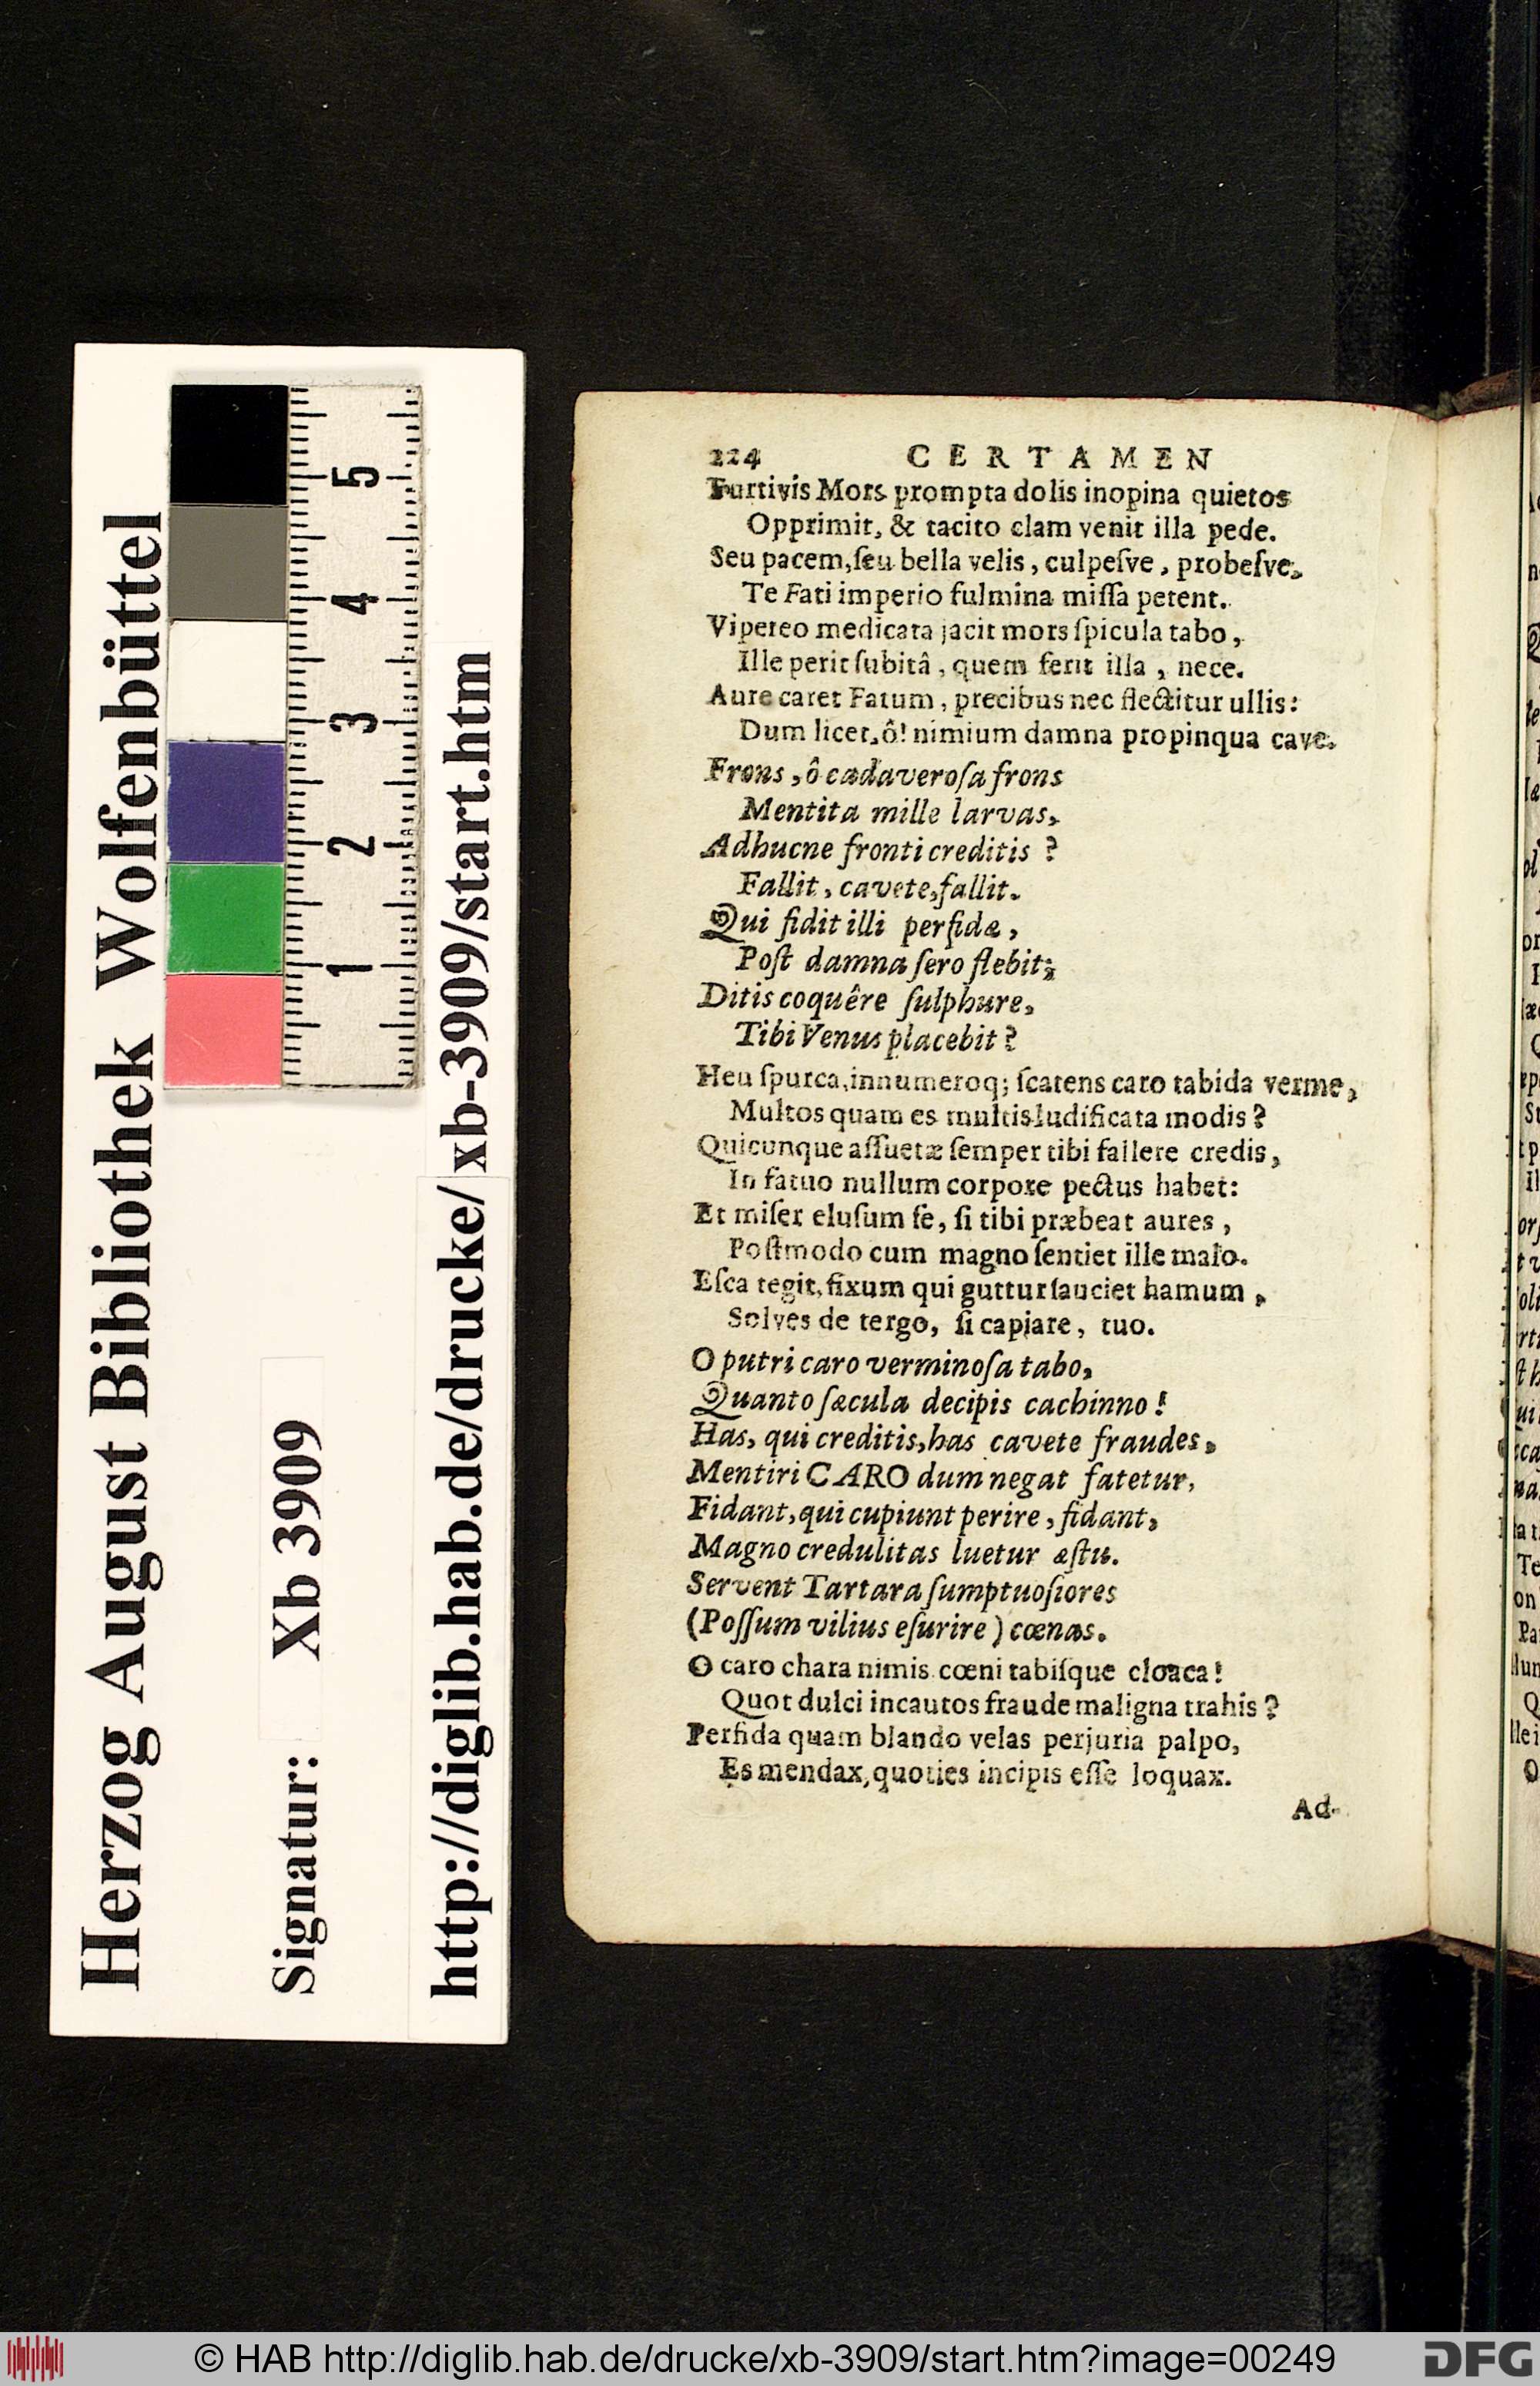 Herzog August Bibliothek Wolfenbüttel
Signatur: Xb 3909
http://diglib.hab.de/drucke/xb-3909/start.htm
5
4
3
2
1
224 CERTAMEN
Furtivis Mors prompta dolis inopina quietos
Opprimit, & tacito clam venit illa pede.
Seu pacem, ſeu bella velis, culpeſve, probeſve,
Te Fati imperio fulmina miſſa petent.
Vipereo medicata jacit mors ſpicula tabo,
Ille perit ſubitâ, quem ferit illa, nece.
Aure caret Fatum, precibus nec flectitur ullis:
Dum licet, ô! nimium damna propinqua cave.
Frons, ô cadaveroſa frons
Mentita mille larvas,
Adhucne fronti creditis?
Fallit, cavete, fallit.
Qui fidit illi perfidæ,
Poſt damna ſero flebit;
Ditis coquêre ſulphure,
Tibi Venus placebit?
Heu ſpurca, innumeroq; ſcatens caro tabida verme,
Multos quam es multis ludificata modis?
Quicunque aſſuetæ ſemper tibi fallere credis,
In fatuo nullum corpore pectus habet:
Et miſer eluſum ſe, ſi tibi præbeat aures,
Poſtmodo cum magno ſentiet ille malo.
Eſca tegit, fixum qui guttur ſauciet hamum,
Solves de tergo, ſi capiare, tuo.
O putri caro verminoſa tabo,
Quanto ſæcula decipis cachinno!
Has, qui creditis, has cavete fraudes,
Mentiri CARO dum negat fatetur,
Fidant, qui cupiunt perire, fidant,
Magno credulitas luetur æſtu.
Servent Tartara ſumptuoſiores
(Poſſum vilius eſurire) cœnas.
O caro chara nimis cœni tabiſque cloaca!
Quot dulci incautos fraude maligna trahis?
Perfida quam blando velas perjuria palpo,
Es mendax, quoties incipis eſſe loquax.
Ad-
© HAB http://diglib.hab.de/drucke/xb-3909/start.htm?image=00249
DFG